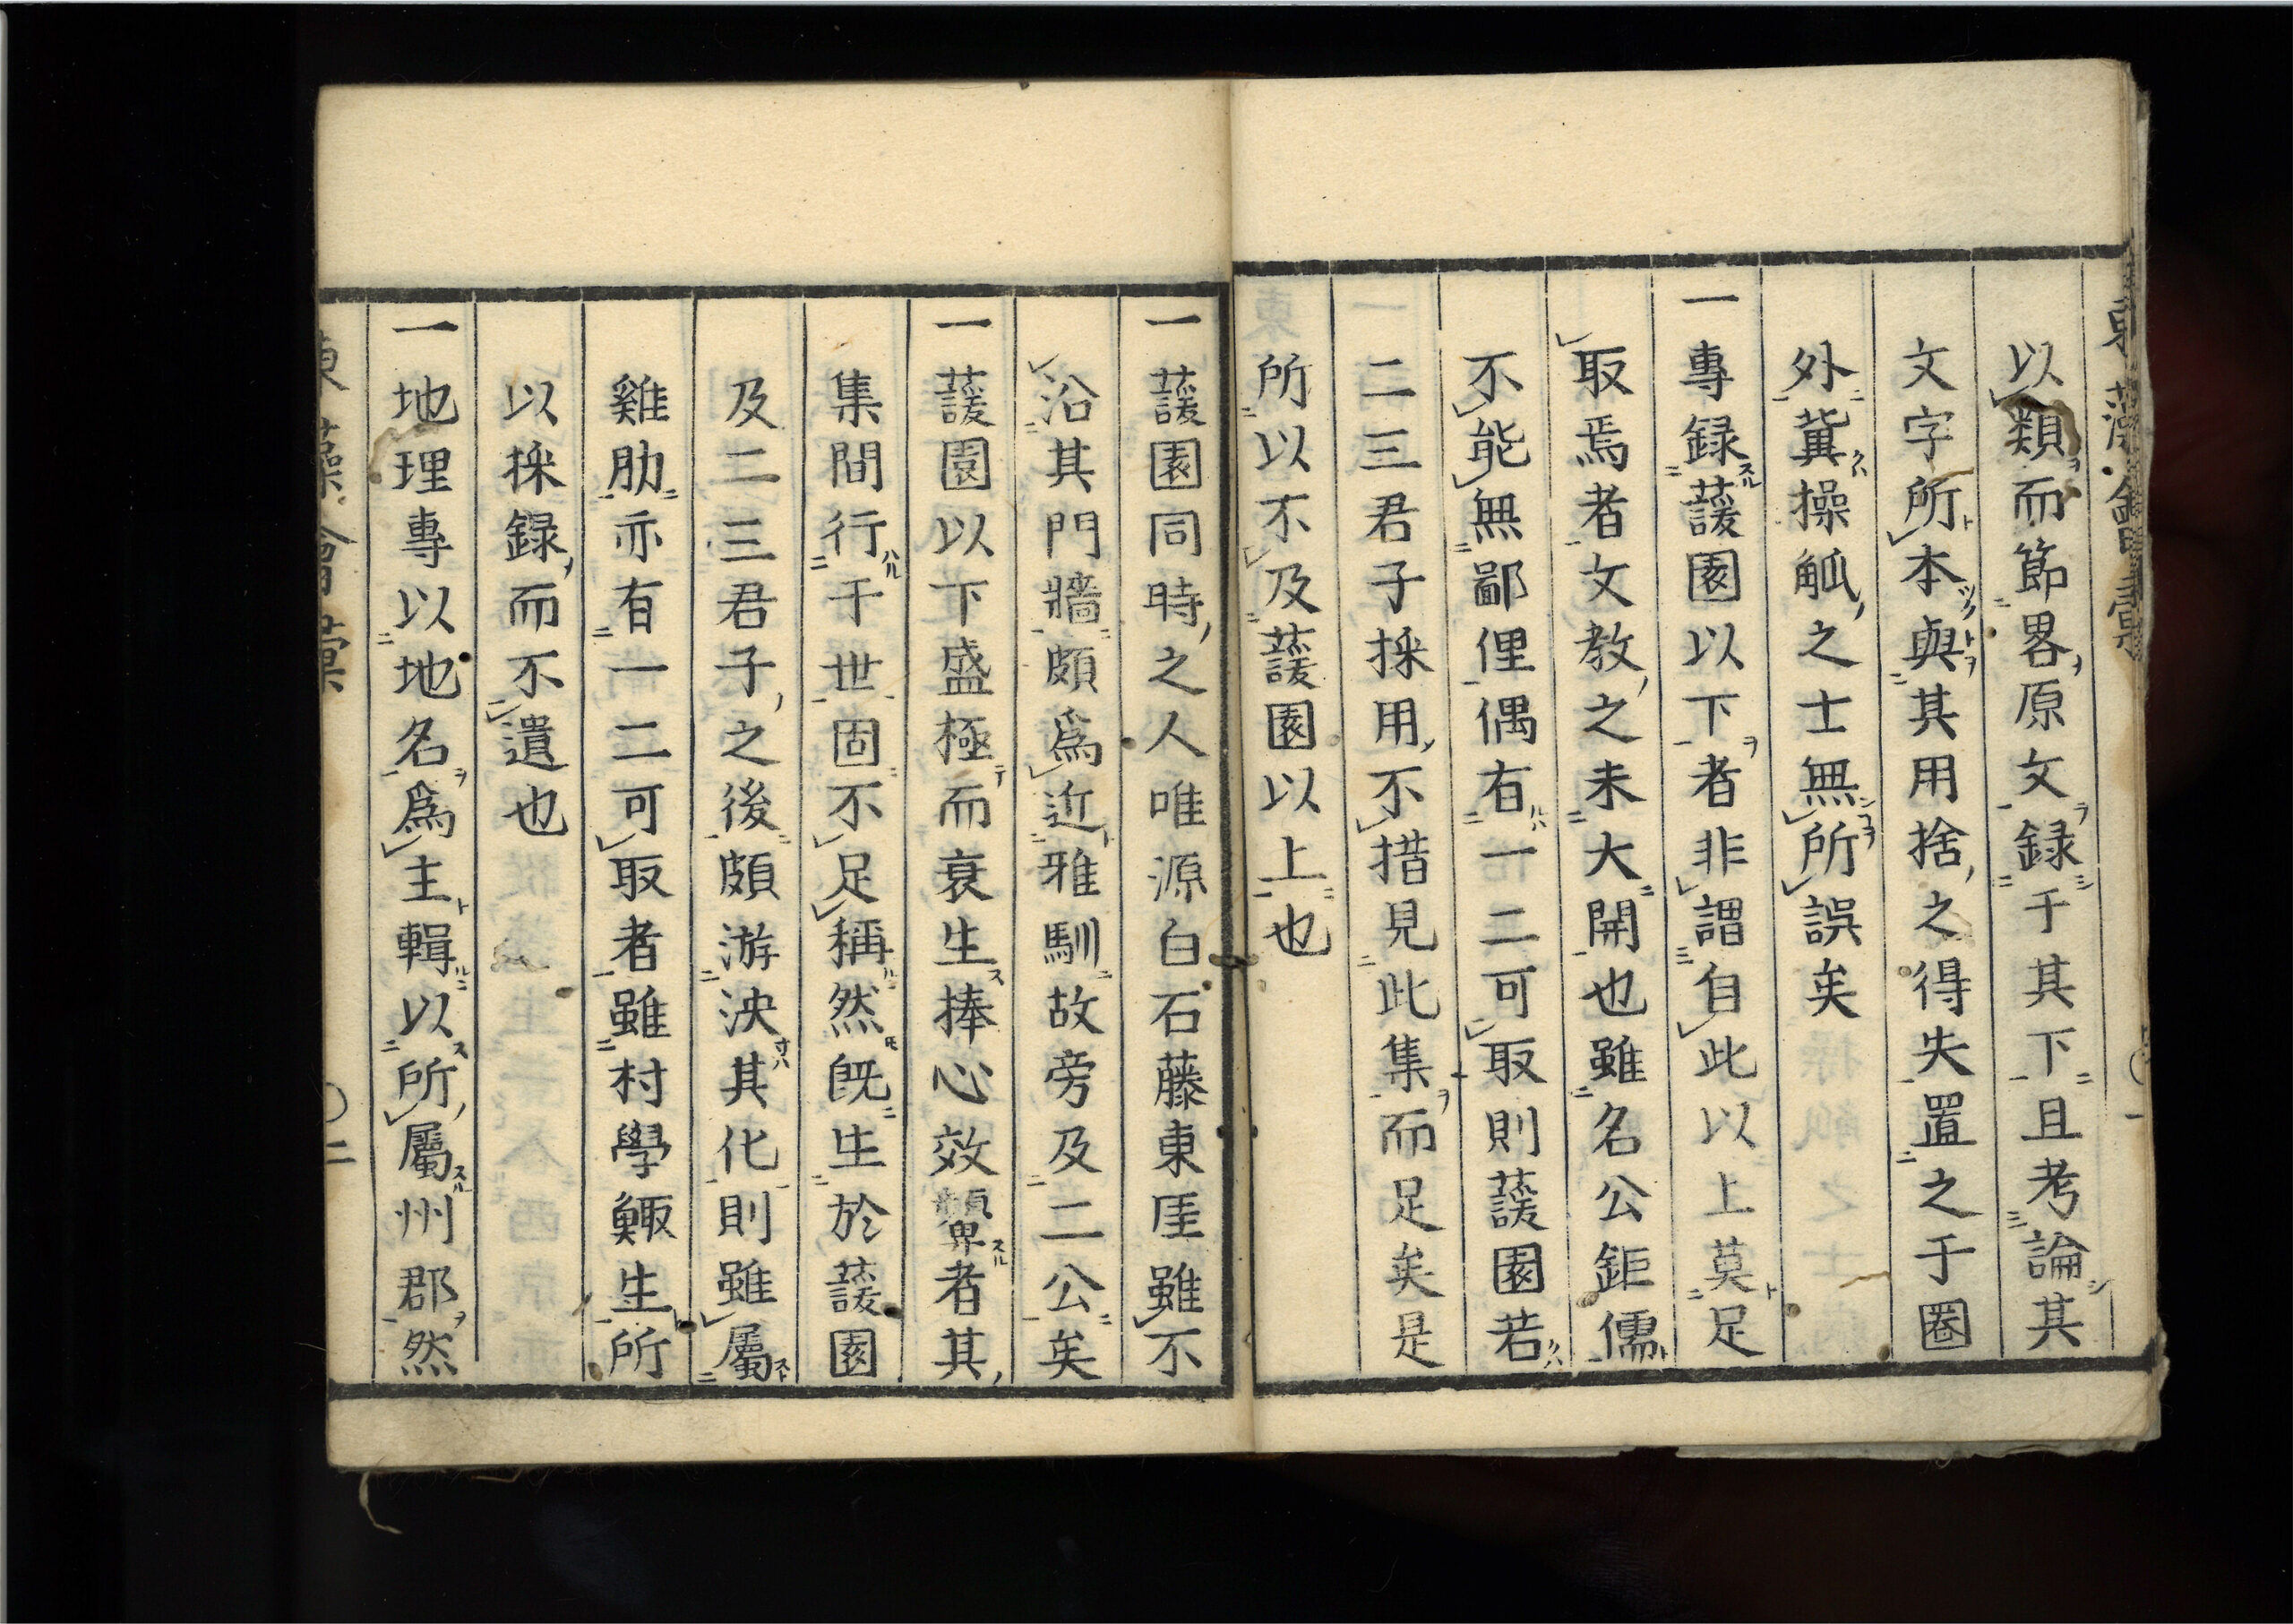 以類而節畧原文録于其下且考論其
文字所本與其用捨之得失置之于圈
外冀操觚之士無所誤矣
一專録蘐園以下者非謂自此以上莫足
取焉者文教之未大開也雖名公鉅儒
不能無鄙俚偶有一二可取則蘐園若
二三君子採用不措見此集而足矣是
所以不及蘐園以上也
一蘐園同時之人唯源白石藤東厓雖不
沿其門牆頗爲近雅馴故旁及二公矣
一蘐園以下盛極而衰生捧心效顰者其
集間行于世固不足稱然既生於蘐園
及二三君子之後頗游泱其化則雖屬
雞肋亦有一二可取者雖村學鯫生所
以採録而不遺也
一地理專以地名爲主輯以所屬州郡然
二